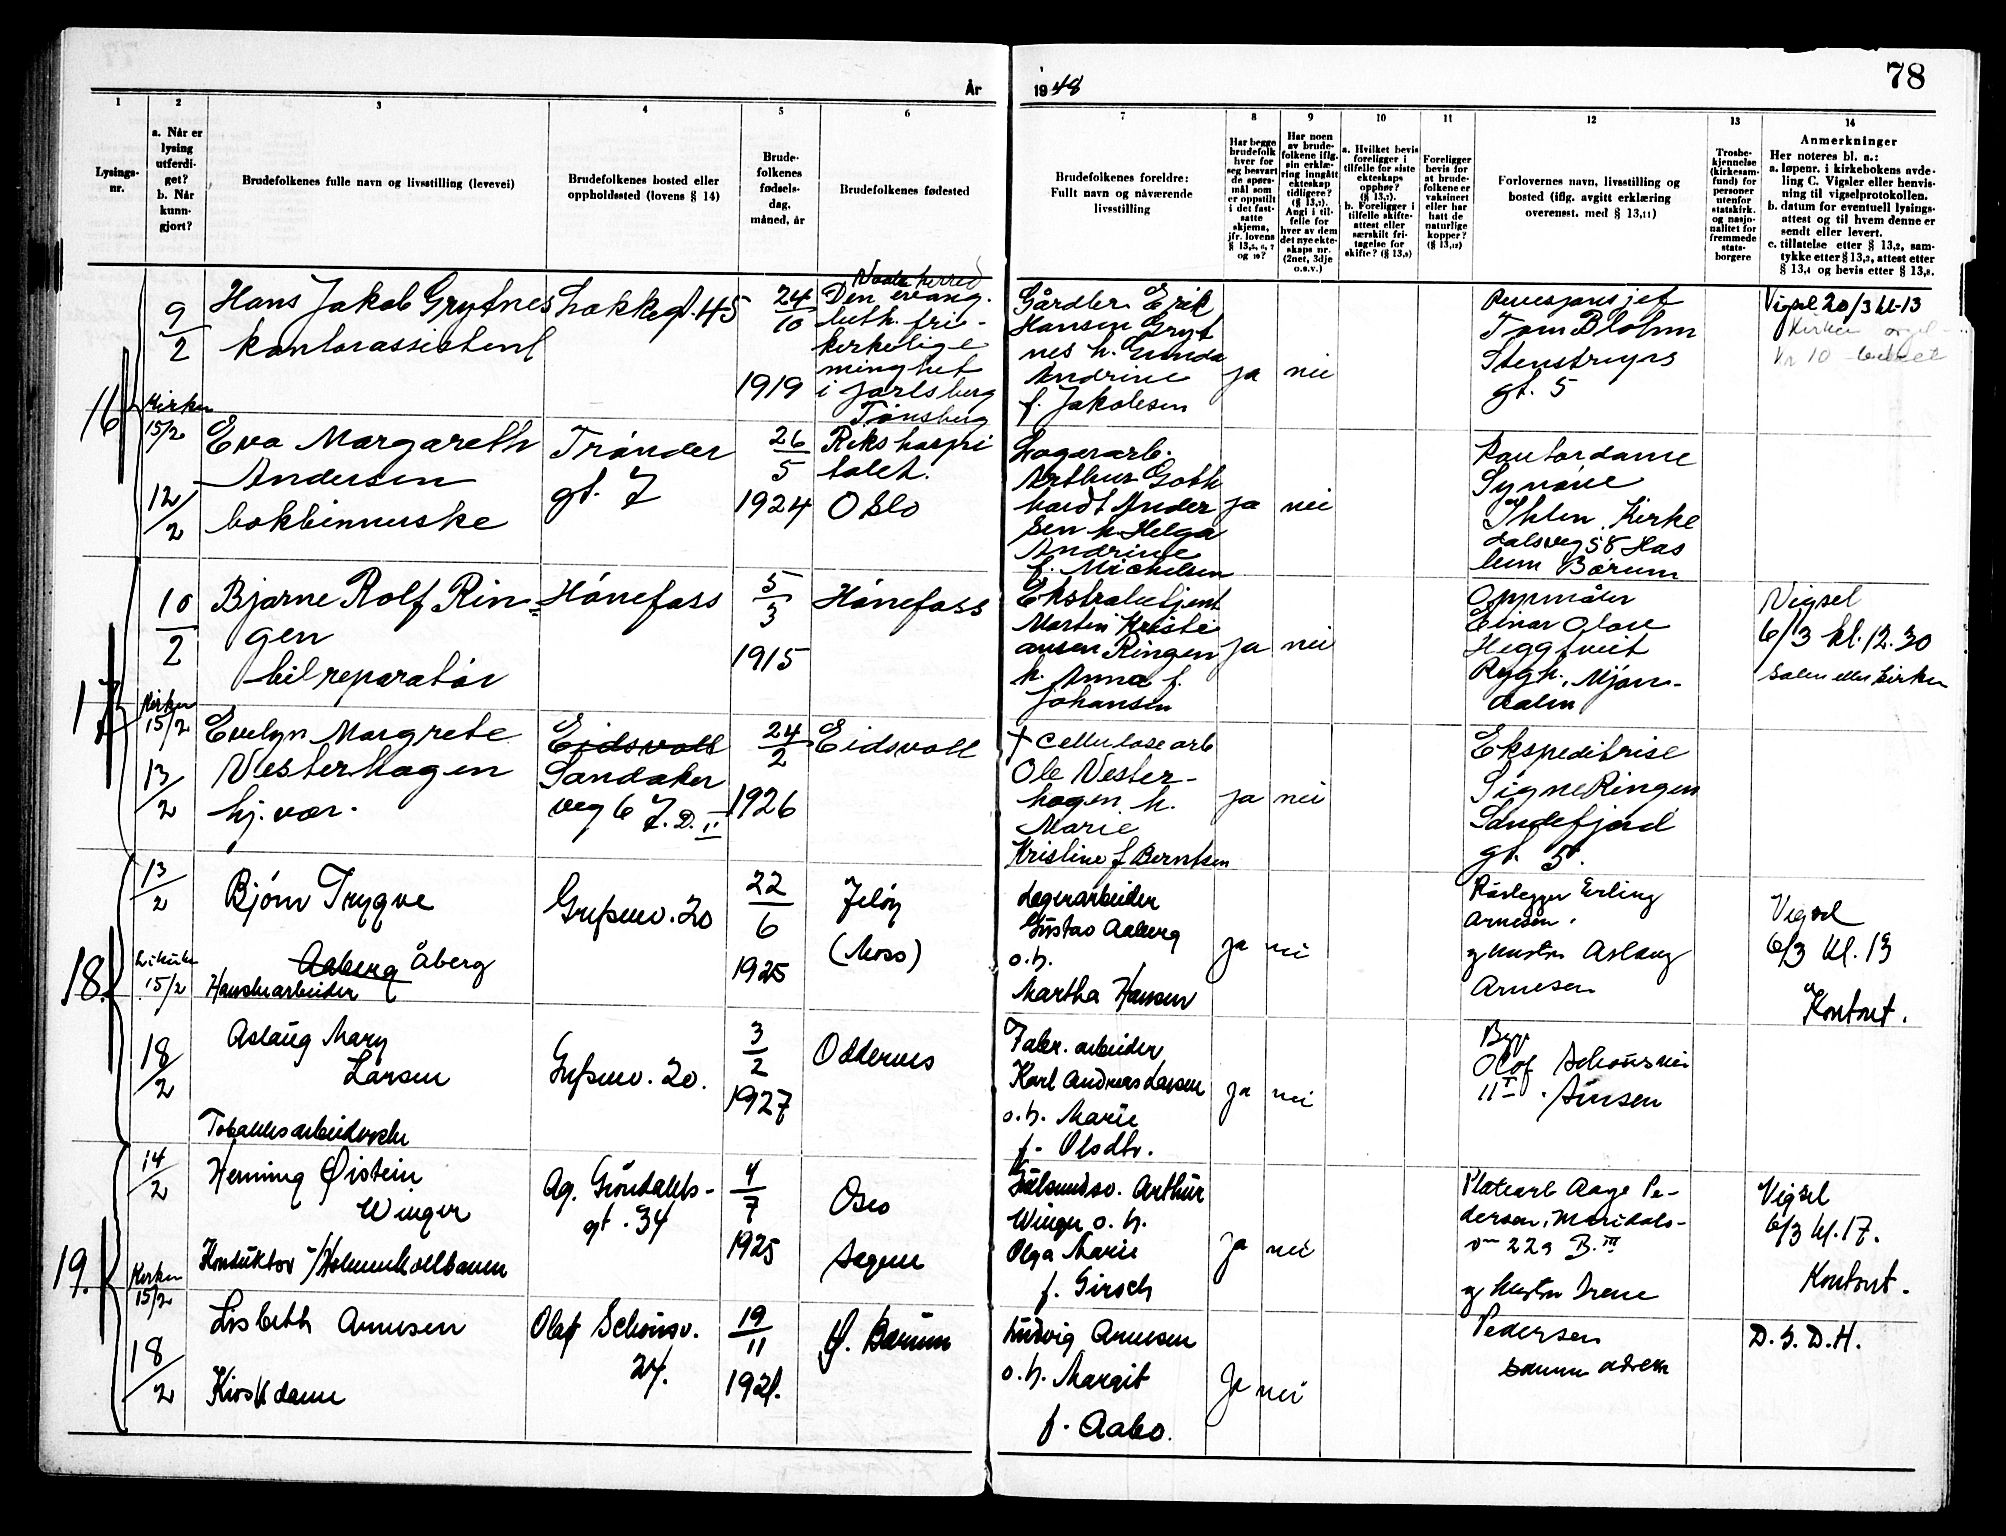 78
År
1948
1
2
3
4
5
6
7
8
9
10
11
12
13
14
Lysings-
nr.
a. Når er
lysing
utferdi-
get?
b. Når
kunn-
gjort?
Brudefolkenes fulle navn og livsstilling (levevei)
Brudefolkenes bosted eller
oppholdssted (lovens § 14)
Brude-
folkenes
fødsels-
dag,
måned, år
Brudefolkenes fødested
Brudefolkenes foreldre:
Fullt navn og nåværende
livsstilling
Har begge
brudefolk
hver for
seg besvart
de spørs-
mål som
er oppstilt
i det fast-
satte
skjema,
jfr. lovens
og 10?
Har noen
av brude-
folkene iflg.
sin erklæ-
ring inngått
ekteskap
tidligere?
(§ 13,7).
Angi i til-
felle for
hver av dem
det nye ekte-
skaps nr.
(2net, 3dje
o.s.v.)
a. Hvilket bevis
foreligger i
tilfelle for siste
ekteskaps
opphør?
(§ 13,7).
b. Foreligger i
tilfelle skifte-
attest eller
særskilt fri-
tagelse for
skifte? (§ 13,9)
Foreligger
bevis for
at brude-
folkene er
vaksinert
eller har
hatt de
naturlige
kopper?
(§ 13,12)
Forlovernes navn, livsstilling og
bosted (iflg. avgitt erklæring
overenst. med § 13,11)
Trosbe-
kjennelse
(kirkesam-
fund) for
personer
utenfor
statskirk.
og nasjo-
nalitet for
fremmede
stats-
borgere
Anmerkninger
Her noteres bl. a.:
a. løpenr. i kirkebokens avde-
ling C. Vigsler eller henvis-
ning til Vigselprotokollen.
b. datum for eventuell lysings-
attest og til hvem denne er
sendt eller levert.
c. tillatelse etter § 13,2, sam-
tykke etter § 13,3, attest etter
§ 13,4 og bevis etter § 13,8.
16
9/2
Kirken
15/2
12/2
Hans Jakob Grytnes
kontorassistent
Lakkegt. 45
24/10
1919
Våle herred
Den evang.
luth. fri-
kirkelige
menighet
i Jarlsberg
Tønsberg
Gårdbr. Erik
Hansen Gryt
nes h. Gunda
Andrine
f. Jakobsen
ja
nei
Tom Blohm
Stenstrups
gt. 5
Vigsel 20/3 kl. 13
Eva Margareth
Andersen
bokbinnerske
Trønder
gt. 7
26/5
1924
Rikshospi
talet.
Oslo
Lagerarb.
Arthur Gott
hardt Ander
sen h. Helga
Andrine
f. Michelsen
ja
nei
Kontordame
Synøve
Ihlen, Kirke
dalsveg 58 Has
lum Bærum
17
10/2
Kirken
15/2
13/2
Bjarne Rolf Rin-
gen
bilreparatør
Hønefoss
5/3
1915
Hønefoss
Ekstrabetjent
Martin Kristi
ansen Ringen
h. Anna f.
Johansen
ja
nei
Oppmåler
Einar Olore
Heggtveit
Rygh, Mjøn-
dalen
Vigsel
6/3 kl. 12.30
Salen eller kirken
Evelyn Margrete
Vesterhagen
hj. vær.
Eidsvoll
Sandaker
veg 67. D. II
24/2
1926
Eidsvoll
† Cellulosearb
Ole Vester-
hagen h.
Marie
Kristine f Berntsen
ja
nei
Ekspeditrise
Signe Ringen
Sandefjord
gt. 5.
18.
13/2
15/2
18/2
Bjørn Trygve
Aaberg Åberg
Hanskearbeider
Grefsenv. 20
22/6
1925
Jeløy
(Moss)
Lagerarbeider
Gustav Aaberg
o.h.
Martha Hansen
ja
nei
Rørlegger Erling
Arnesen.
og hustru Aslaug
Arnesen
Vigsel
6/3 kl. 13
Kontort.
Aslaug Mary
Larsen
Tobakksarbeiderske
Grefsenv. 20.
3/2
1927
Oddernes
Fabr. arbeider
Karl Andreas Larsen
o.h. Marie
f. Olsdtr.
ja
nei
Olaf Schousvei
11 I. Sinsen
19.
14/2
Kirken
15/2
18/2
Henning Øistein
Winger
Konduktør / Holmenkollbanen
Ag. Grøndahls-
gt. 34
4/7
1925
Oslo
Sagene
Arthur
Winger o.h.
Olga Marie
f. Girsch
ja
nei
Platearb Aage Pe-
dersen, Maridals-
vn 229 B. III
og hustru Irene
Pedersen
samme adresse
Vigsel
6/3 kl. 17.
Kontort.
Lisbeth Arnesen
Kioskdame
Olaf Schousv.
24.
19/11
1921.
V. Bærum
Ludvig Arnesen
o.h. Margit
f. Aabo.
Ja
nei
D. S. D. H.